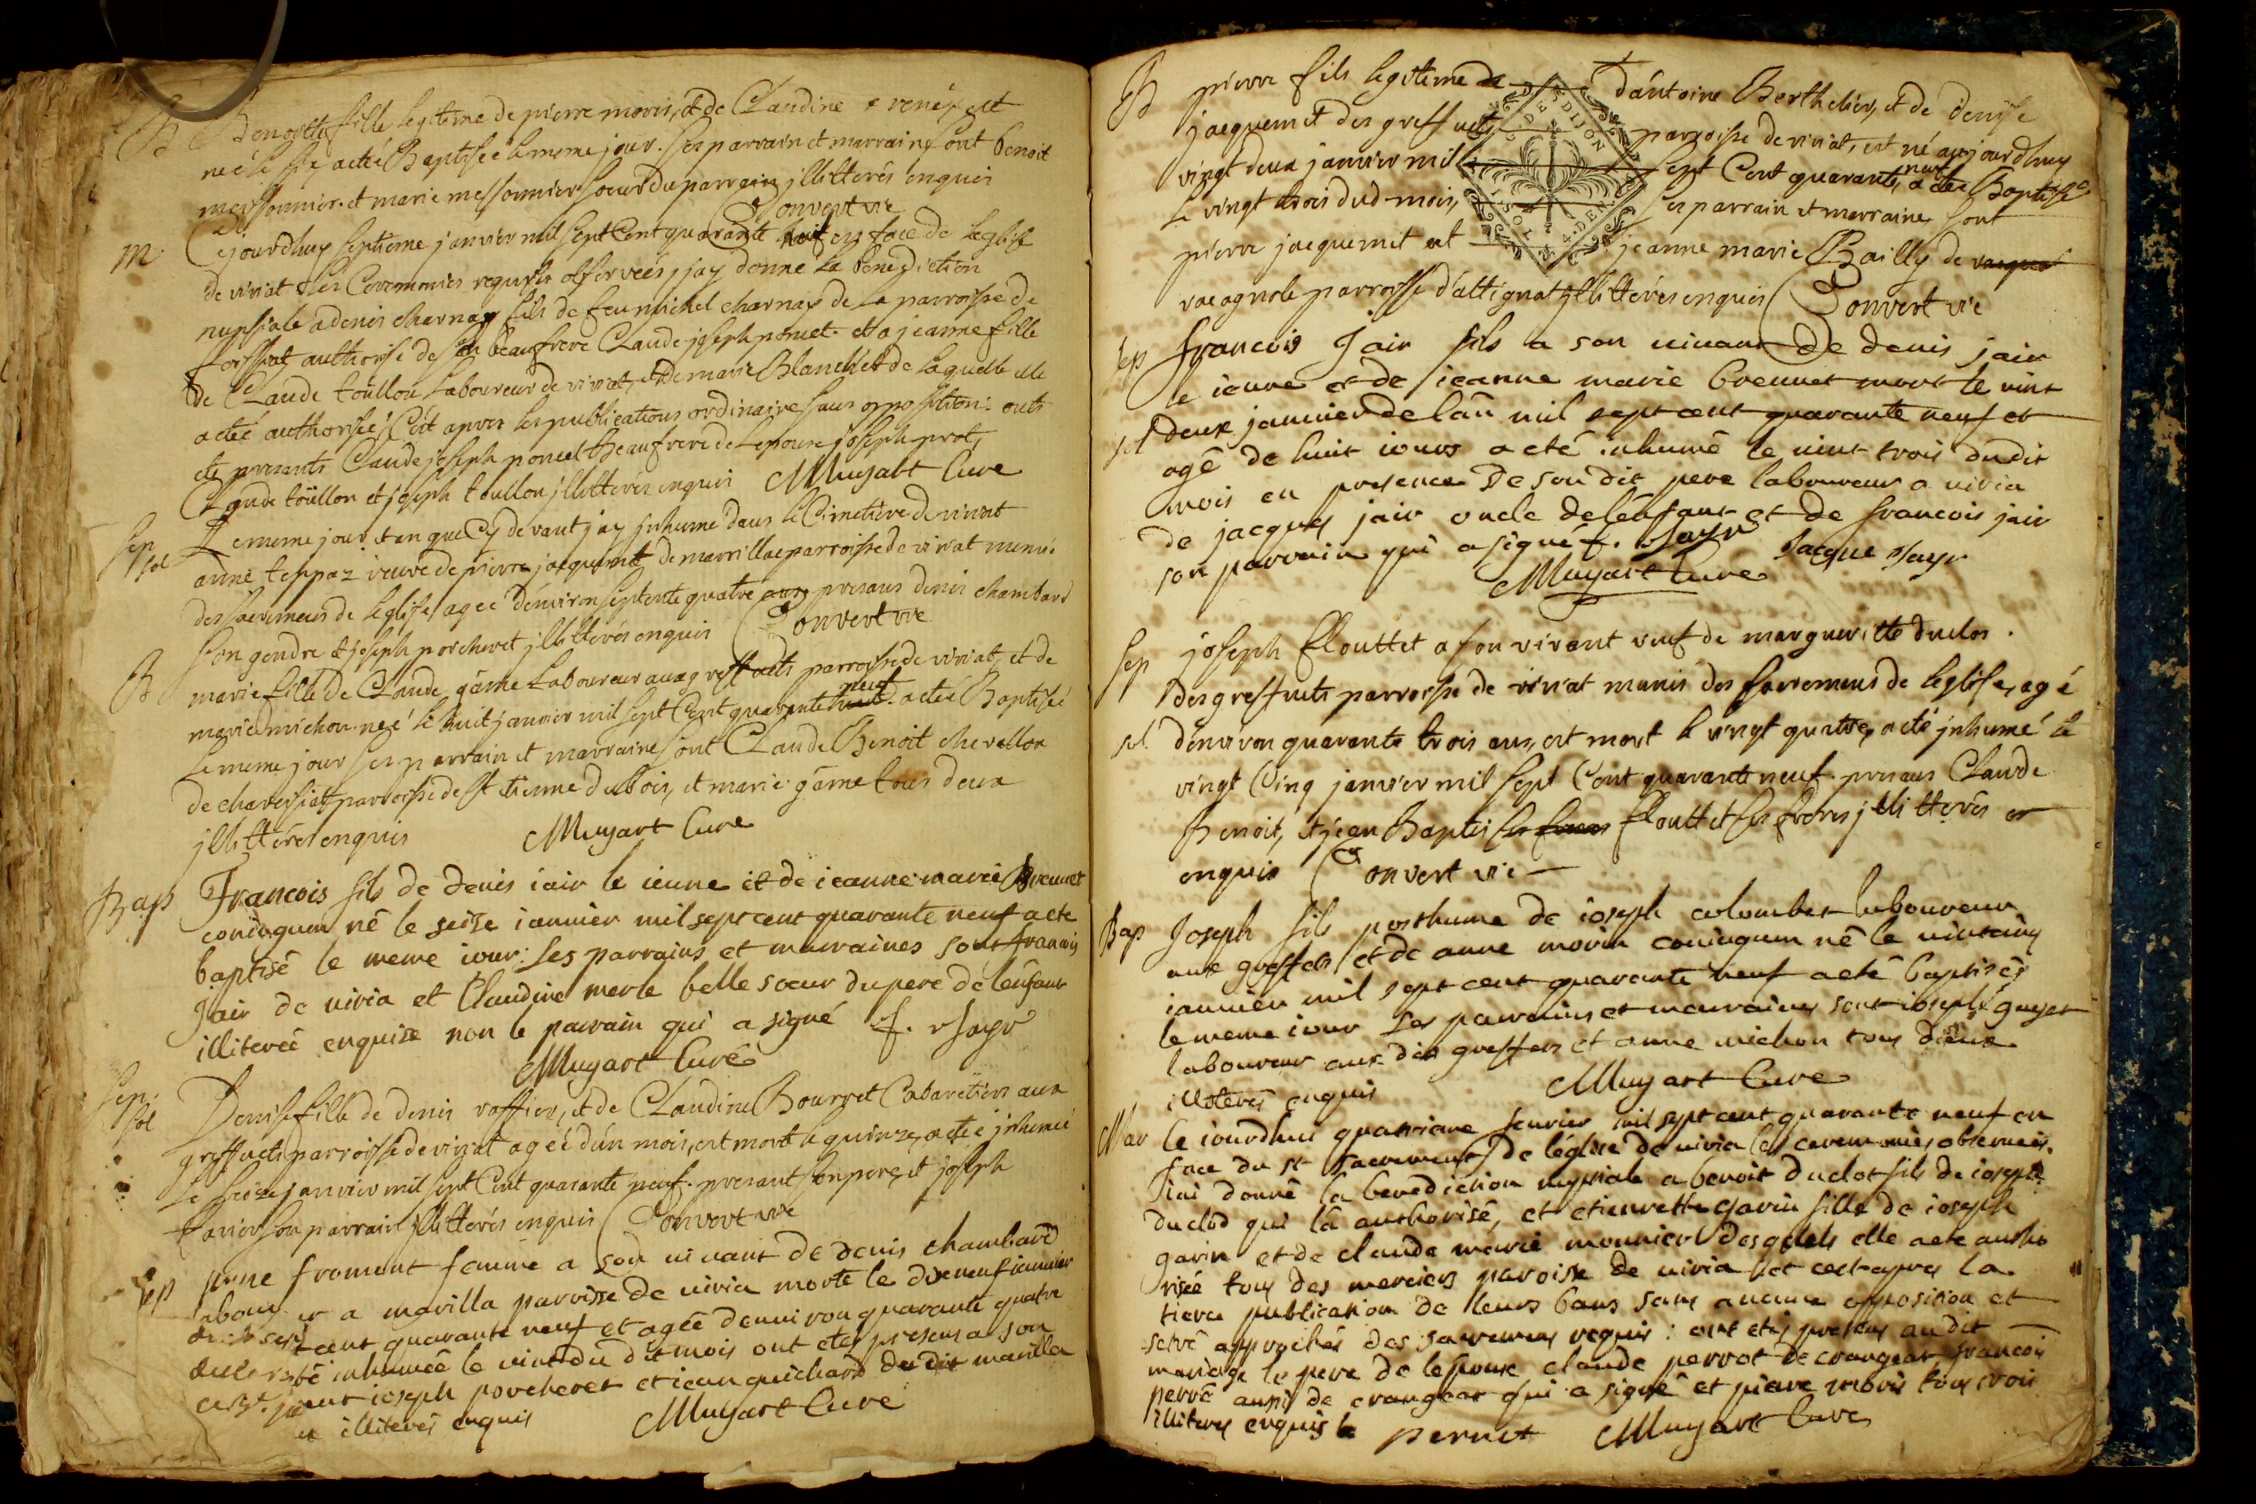 B Benoitte fille legitime de pierre morin, et de Claudine est
née le six a eté Baptisée le meme jour. ses parrain et marraine sont benoit
messonnier et marie messonnier soeur du parrain jllitterés enquis
Convert vic
m Ce jourdhuy septieme janvier mil sept Cent quarante neuf en face de leglise
de viriat les Ceremonies requises observées jay donné la benediction
nuptiale a denis charnay fils de feu michel charnay de la parroisse de
authorisé de son beaufrere Claude joseph poncet et a jeanne fille
de Claude toullon Laboureur de viriat, et de marie Blanchet de laquelle elle
a eté authorisée, C'est apres les publications ordinaires sans opposition. onts
eté presants Claude joseph poncet beaufrere de lepoux joseph prost,
Claude toüllon et joseph toullon jllitterés enquis MMuyart Cure
Sep Le meme jour et an que Cy devant j'ay jnhumé dans le Cimetiere de viriat
sol anne teppaz veuve de pierre jacquemet de marrilla parroisse de viriat munie
des sacremens de leglise, agee d'environ septente quatre ans, presans denis chambard
son gendre et joseph porcheret jllitterés enquis Convert vic
B marie fille de Claude game Laboureur aux greffuets parroisse de viriat, et de
marie michon née le huit janvier mil sept Cent quarante neuf a eté Baptisée
le meme jour ses parrain et marraine sont Claude Benoit chevallon
de chavessiat parroisse de St tienne du bois, et marie game tous deux
jllitterés enquis MMuyart Cure
Bap Francois fils de denis iair le ieune et de ieanne marie Breunet
coniugum né le seize ianuier mil sept cent quarante neuf a ete
baptisé le meme iour: ses parrains et marraines sont francois
Jair de uiria et Claudine merle belle soeur du pere de lenfant
illiterée enquise non le parrain qui a signé f. Jayr
MMuyart Curé
Sep. Denise fille de denis raffier, et de Claudine Bourret Cabaretiers aux
sol greffuets parroisse de viriat agée d'un mois, est morte le quinze, a eté jnhumée
le seize janvier mil sept Cent quarante neuf. presant son pere, et joseph
son parrain jllitterés enquis Convert vic
sep froment femme a son uiuant de denis chambard
a marilla paroisse de uiria morte le dixneuf ianuier
cent quarante neuf et agée denuiron quarante quatre
inhumée le uint du dit mois ont etes presens a son
ioseph porcheret et iean guichard du dit marilla
illiterés enquis MMuyart Cure
B pierre fils legitime de d'antoine Berthelier, et de denise
jacquemet des greffuets parroisse de viriat, est né aujourdhuy
vingt deux janvier mil sept Cent quarante neuf a eté Baptisé
le vingt trois dud. mois, ses parrain et marraine sont
pierre jacquemet et jeanne marie Bailly de
vacagnole parroisse d'attignat jllitterés enquis Convert vic
G DE DIJON
Sep francois Jair fils a son uiuant de denis jair
le ieune et de ieanne marie breunet mort le uint
sol deux januier de lan mil sept cent quarante neuf et
agé de huit iours a eté inhumé le uint trois du dit
mois en presence de son dit pere laboureur a uiria
de jacques jair oncle de lenfant et de francois jair
son parrain qui a signé f. Jayr Jacque Jayr
MMuyart Cure
Sep joseph flouttet a son vivant veuf de margueritte duclos.
des greffuets parroisse de viriat munis des sacremens de leglise, agé
sol d'environ quarante trois ans, est mort le vingt quatre, a eté jnhumé le
vingt Cinq janvier mil sept Cent quarante neuf. presans Claude
Benoit, et jean Baptis flouttet ses freres jllitterés
enquis Convert vic
Bap Joseph fils posthume de ioseph colombet laboureur
aux greffets et de anne morin coniugum né le uintcinq
ianuier mil sept cent quarante neuf a eté baptisé
le meme iour ses parrains et marraines sont ioseph guyet
laboureur aux dits greffets et anne michon tous deux
illiterés enquis MMuyart Cure
Mar Ce iourdhui quatrieme feurier mil sept cent quarante neuf en
face du st sacrement de leglise de uiria les ceremonies obseruées
iai donné la benediction nuptiale a benoit duclot fils de ioseph
duclod qui la authorisé, et etiennette garin fille de ioseph
garin et de claude marie monnier desquels elle a ete autho
risée tous des merciers paroisse de uiria et cest apres la
tierce publication de leurs bans sans aucune opposition et
setre approchés des sacremens requis: ont etés presens au dit
mariage le pere de lepoux claude perrot de crangeat francois
perré aussi de crangeat qui a signé et pierre moris tous trois
illiteres enquis pernet MMuyart Cure